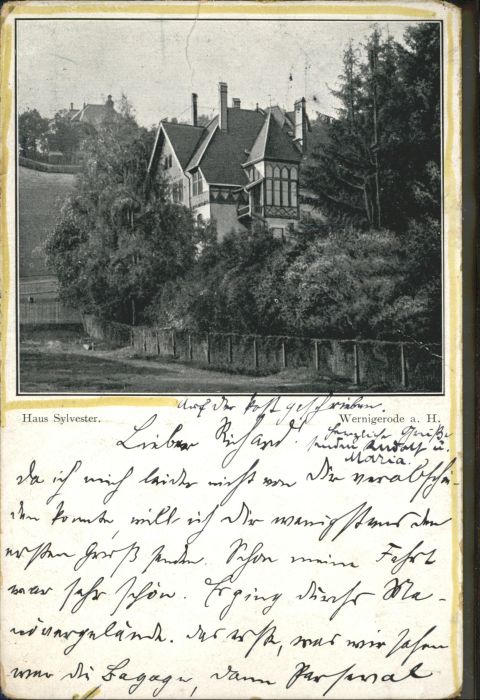 Haus Sylvester.
Wernigerode a. H.
Auf der Post geschrieben.
Lieber Richard!
herzliche Grüße
senden Rudolf u.
Maria.
da ich mich leider nicht von Dir verabschie-
den konnte, will ich Dir wenigstens den
ersten Gruß senden. Schon meine Fahrt
war sehr schön. Es ging durchs Ma-
növergelände. Das erste, was wir sahen
war die Bagage, dann Parseval